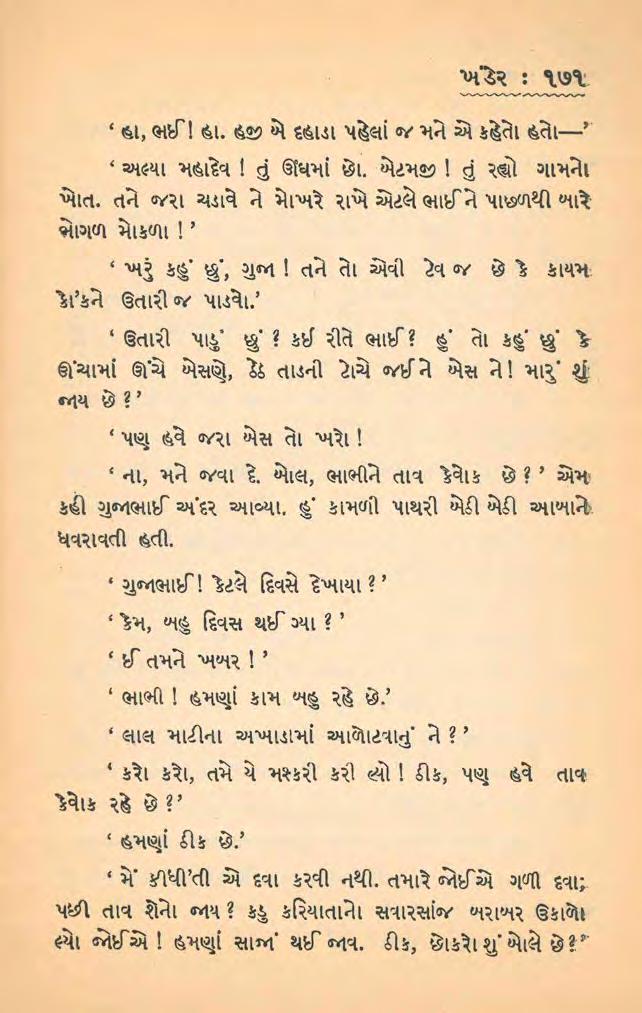 ખંડેર : ૧૭૧
‘ હા, ભઈ! હા. હજી બે દહાડા પહેલાં જ મને એ કહેતો હતો—’
‘ અલ્યા મહાદેવ ! તું ઊંઘમાં છો. બેટમજી ! તું રહ્યો ગામનો
ખોત. તને જરા ચડાવે ને મોખરે રાખે એટલે ભાઈને પાછળથી બારે
ભોગળ મોકળા ! ’
‘ ખરું કહું છું, ગુજા ! તને તો એવી ટેવ જ છે કે કાયમ
કો’કને ઉતારી જ પાડવો.’
‘ ઉતારી પાડું છું ? કઈ રીતે ભાઈ ? હું તો કહું છું કે
ઊંચામાં ઊંચે બેસણે, ઠેઠ તાડની ટોચે જઈને બેસ ને! મારું શું
જાય છે ? ’
‘ પણ હવે જરા બેસ તો ખરો !
‘ ના, મને જવા દે. બોલ, ભાભીને તાવ કેવોક છે ? ’ એમ
કહી ગુજાભાઈ અંદર આવ્યા. હું કામળી પાથરી બેઠી બેઠી આબાને
ધવરાવતી હતી.
‘ ગુજાભાઈ! કેટલે દિવસે દેખાયા ? ’
‘ કેમ, બહુ દિવસ થઈ ગ્યા ? ’
‘ ઈ તમને ખબર ! ’
‘ ભાભી ! હમણાં કામ બહુ રહે છે.’
‘ લાલ માટીના અખાડામાં આળોટવાનું ને ? ’
‘ કરો કરો, તમે યે મશ્કરી કરી લ્યો ! ઠીક, પણ હવે તાવ
કેવોક રહે છે ?’
‘ હમણાં ઠીક છે.’
‘ મેં કીધી’તી એ દવા કરવી નથી. તમારે જોઈએ ગળી દવા;
પછી તાવ શેનો જાય ? કડુ કરિયાતાનો સવારસાંજ બરાબર ઉકાળો
લ્યો જોઈએ ! હમણાં સાજાં થઈ જાવ. ઠીક, છોકરો શું બોલે છે?’